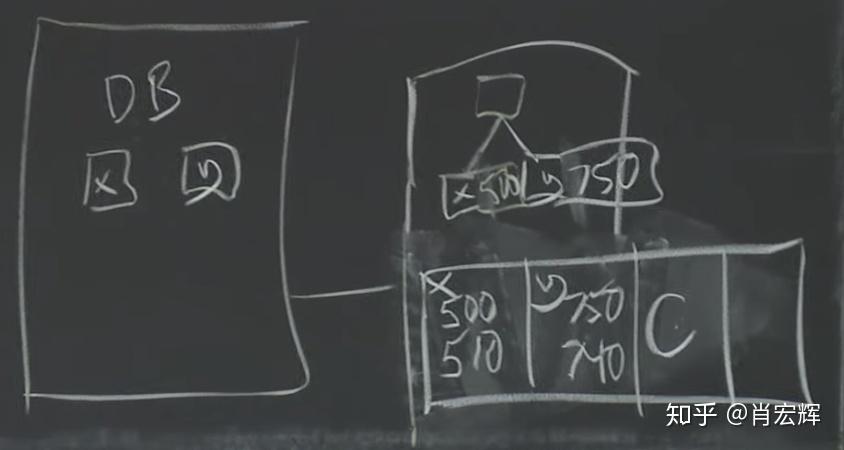 DB
X
y
X 500 y 750
X
500
510
y
750
740
C
知乎 @肖宏辉